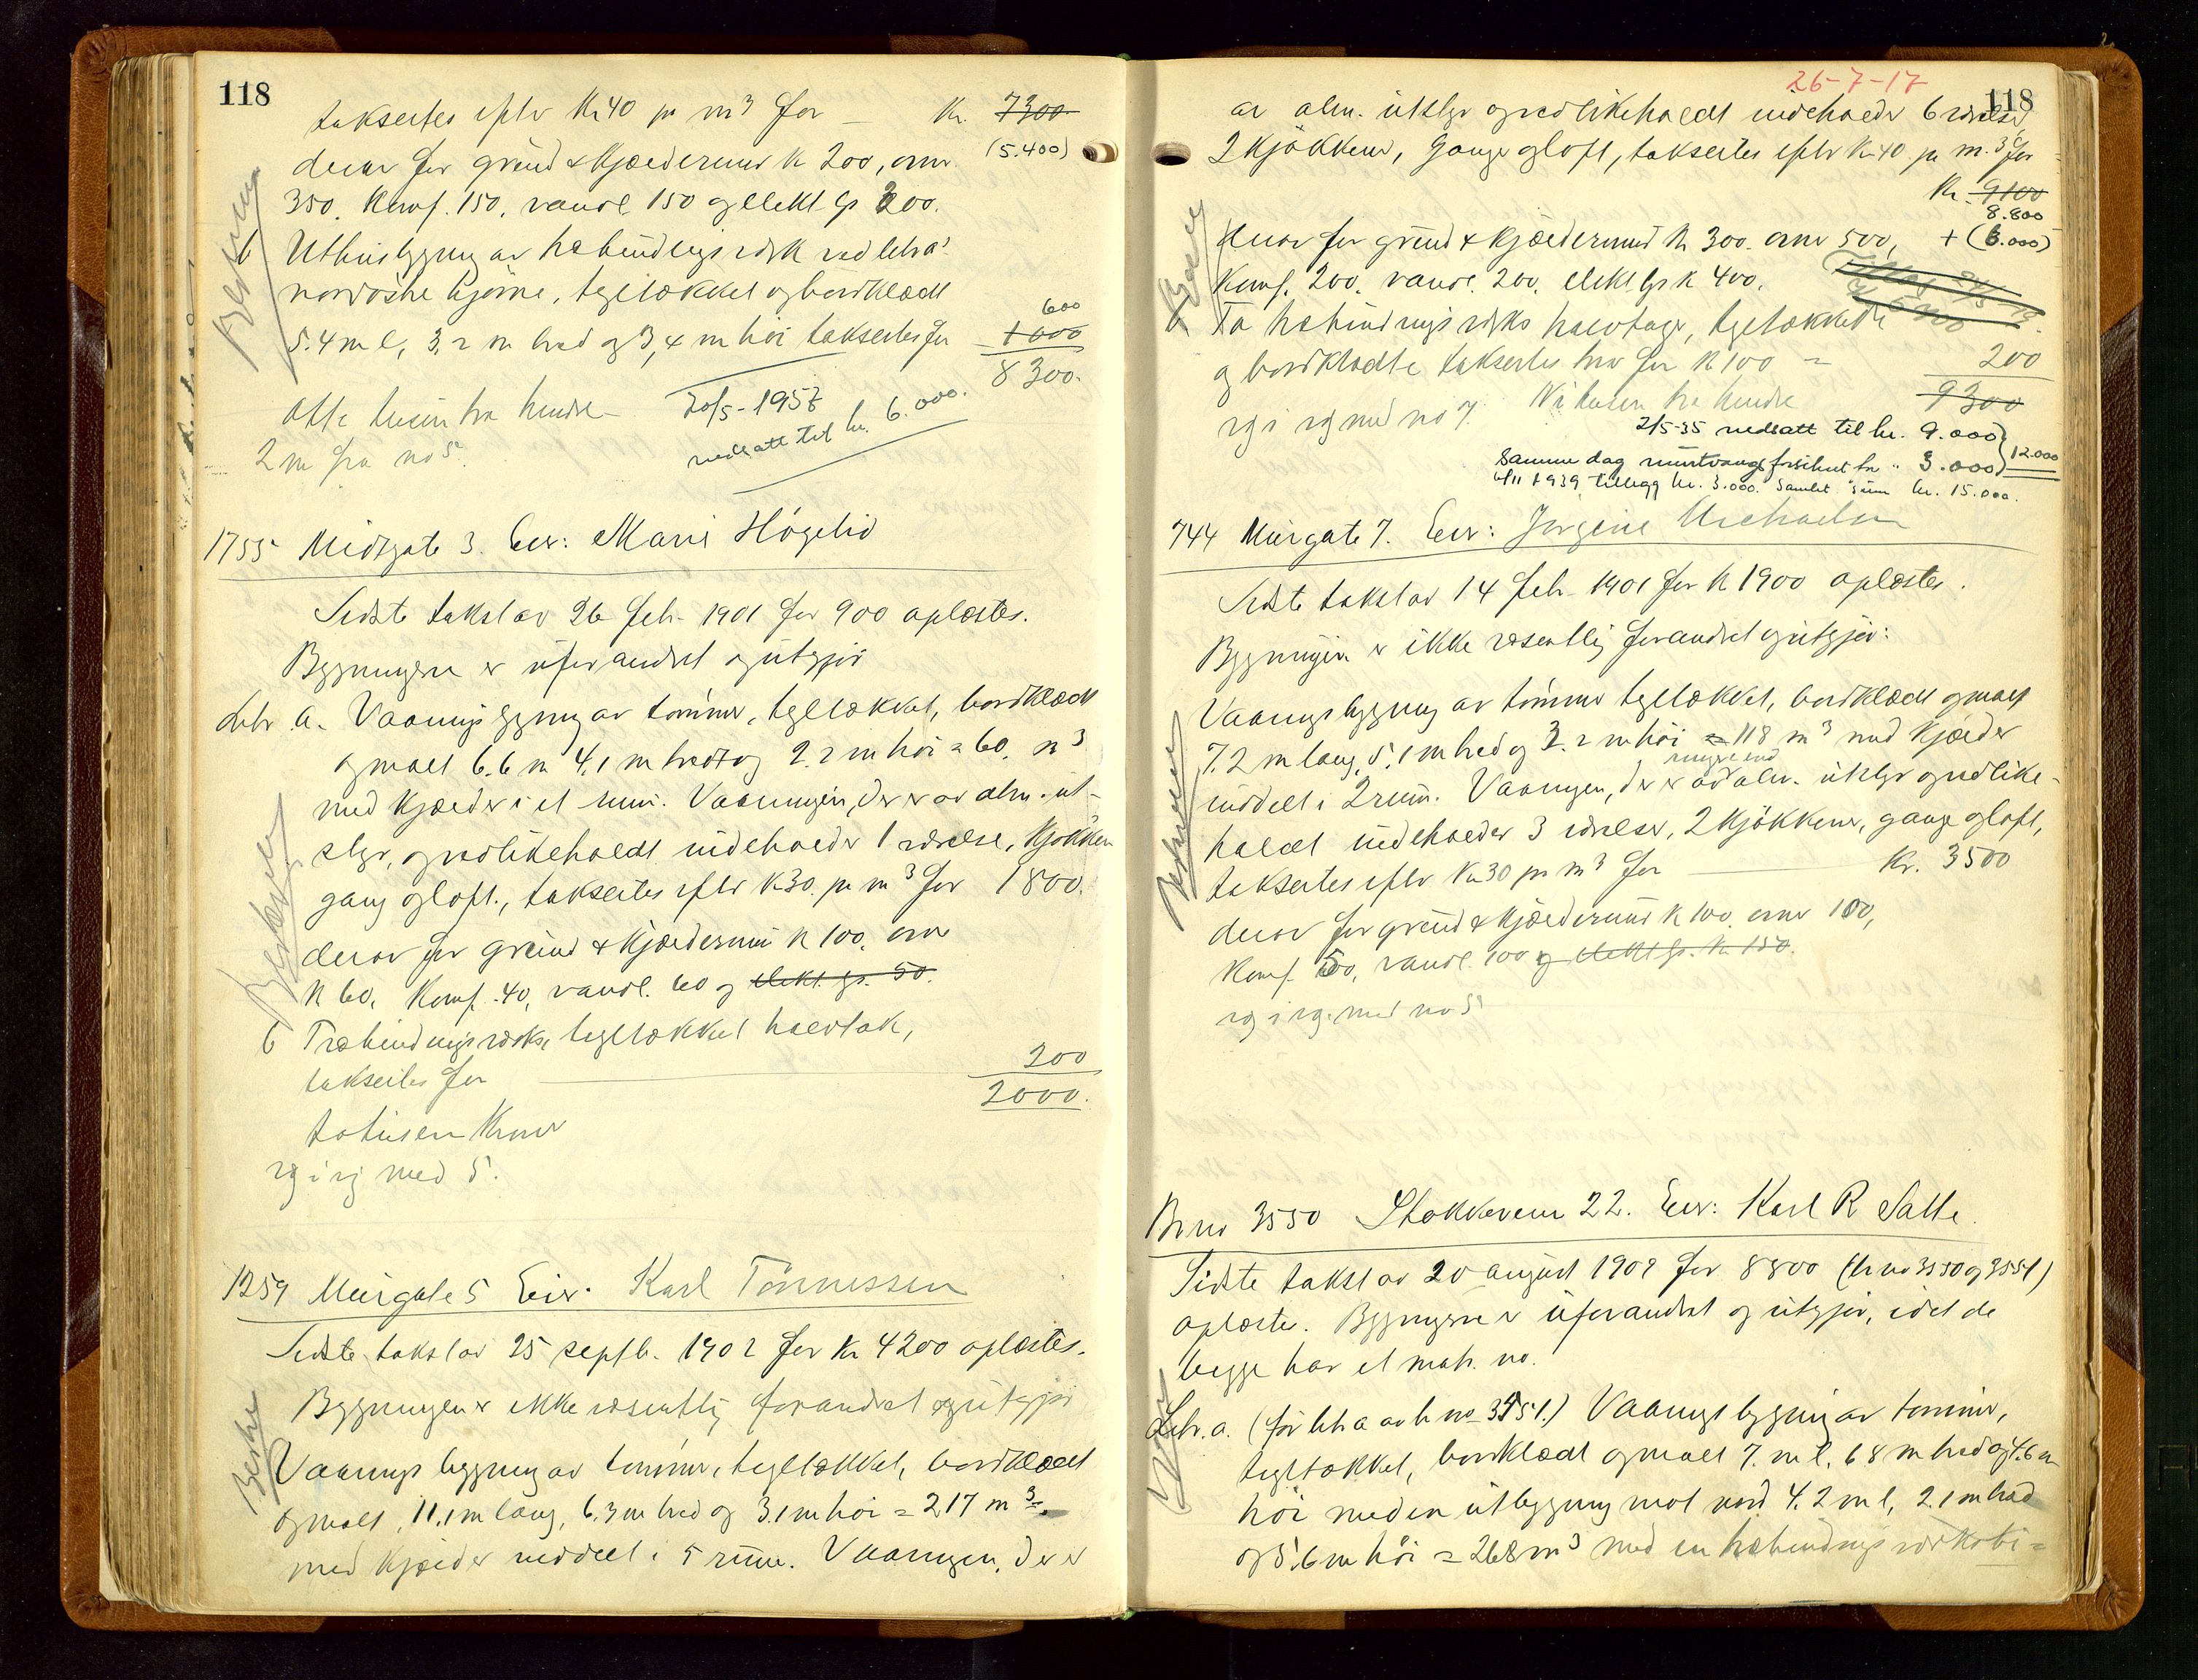 118
takseertes efter Kr 40 pr m³ for — Kr. 7300
(5.400)
derav for grund & kjældermur k 200, ovner
350. Komf. 150, vandl 150 og elekt. lys 200.
b Uthusbygning av træbindingsverk ved letra'
nordöstre hjörne, teglækket og bordklædt
600
5.4 m l, 3.2 m bred og 3,4 m höi takseertes for 1000
8300.
Otte tusen tre hundre — 20/5-1957
nedsatt til kr. 6.000.
2 m fra no 5.
1755 Midtgate 3. Eier: Marie Högelid
Sidste takst av 26 feb. 1901 for 900 oplæstes.
Bygningerne er uforandret og utgjör
Litr a. Vaaningsbygning av tömmer, teglækket, bordklædt
og malt 6.6 m 4.1 m bredt og 2.2 m höi = 60. m³
med kjælder i et rum. Vaaningen, der er av alm. ut-
styr, og vedlikeholdt indeholder 1 værelse, kjökken
gang og loft., takseertes efter k 30. pr m³ for 1800.
derav for grund & kjælderrum k 100. ovner
k 60, Komf. 40, vandl. 60 og elekt. lys. 50.
b Træbindingsverks, teglækket halvtak,
takseertes for 200
2000.
totusen Kroner
væg i væg med 5.
1259 Murgate 5 Eier: Karl Tönnessen
Sidste takst av 25 septb. 1902 for Kr 4200 oplæstes.
Bygningen er ikke væsentlig forandret og utgjör
Vaaningsbygning av tömmer, teglækket, bordklædt
og malt, 11.1 m lang, 6.3 m bred og 3.1 m höi = 217 m³
med kjælder inddelt i 5 rum. Vaaningen, der er
26-7-17
118
av alm. utstyr og vedlikeholdt indeholder 6 værelser
2 kjökkener, gange og loft, takseertes efter Kr 40 pr m.³ for
Kr. 9100
8.800
derav for grund & kjælderrum k 300. ovner 500, + (6.000)
Komf. 200. vandl. 200. elekt lys k 400.
b To træbindingsverks halvtage, teglækkede
og bordklædte takseertes hver for k 100 = 200
9300
væg i væg med no 7. Ni tusen tre hundre
2/5-35 nedsatt til kr. 9.000
Samme dag murtvangsforsikret for " 3.000 12.000
6/11 1939, tillegg kr. 3.000. Samlet sum kr. 15.000.
744 Murgate 7. Eier: Jorgine Michaelsen
Sidste takst av 14 feb. 1901 for k 1900 oplæstes.
Bygningen er ikke væsentlig forandret og utgjör:
Vaaningsbygning av tömmer teglækket, bordklædt og malt
7.2 m lang, 5.1 m bred og 3.2 m höi = 118 m³ med kjælder
inddelt i 2 rum. Vaaningen, der er av alm. utstyr og vedlike-
holdt indeholder 3 værelser, 2 kjökkener, gange og loft,
takseertes efter Kr 30 pr m³ for — Kr. 3500
derav for grund & kjælderrum k 100. ovner 100,
Komf. 50, vandl. 100 og elekt lys. k 150.
væg i væg med no 5
Br no 3550 Stokkeveien 22. Eier: Karl R Salte
Sidste takst av 20 august 1902 for 8800 (br no 3550 og 3551)
oplæstes. Bygningerne er uforandret og utgjör, idet de
begge har et matr. no.
Litr. a. (för litr a av br no 3551.) Vaaningsbygning av tömmer,
teglækket, bordklædt og malt 7. m l. 6.8 m bred og 4.6 m
höi med en utbygning mot nord 4.2 m l, 2.1 m bred
og 5.6 m höi = 268 m³ med en træbindingsverks bi=